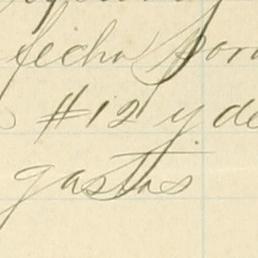 fecha para
#12 y de
gastos